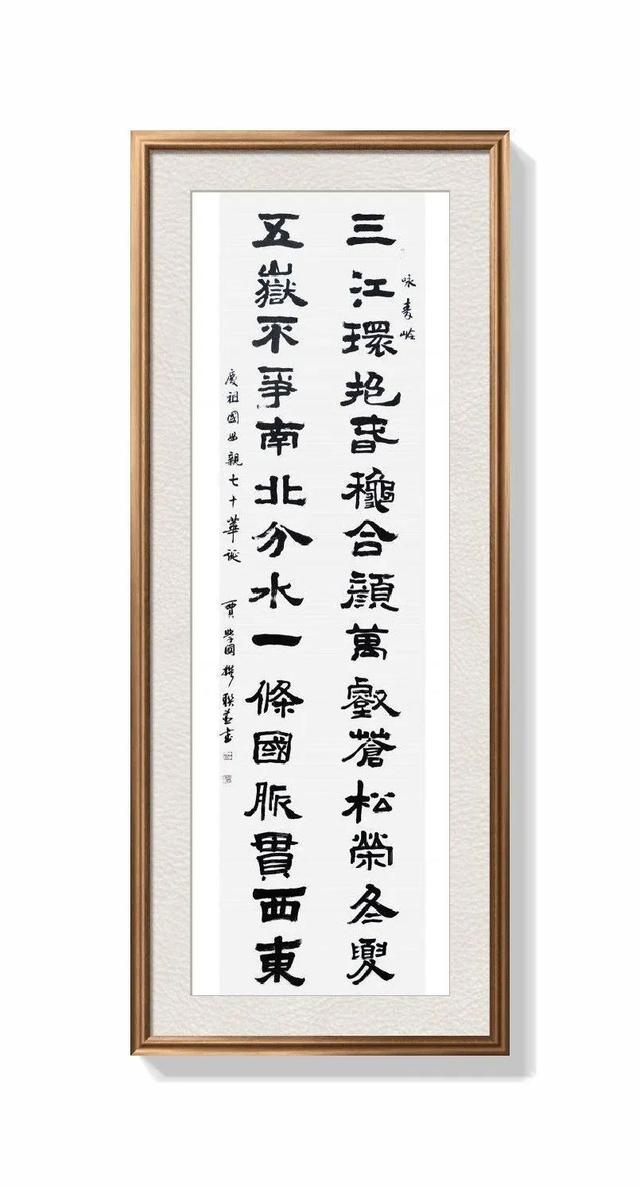 咏秦岭
三江環抱春穐合顔萬壑蒼松榮冬夏
五嶽不爭南北分水一條國脈貫西東
慶祖國母親七十華誕 賈學國撰聯並書